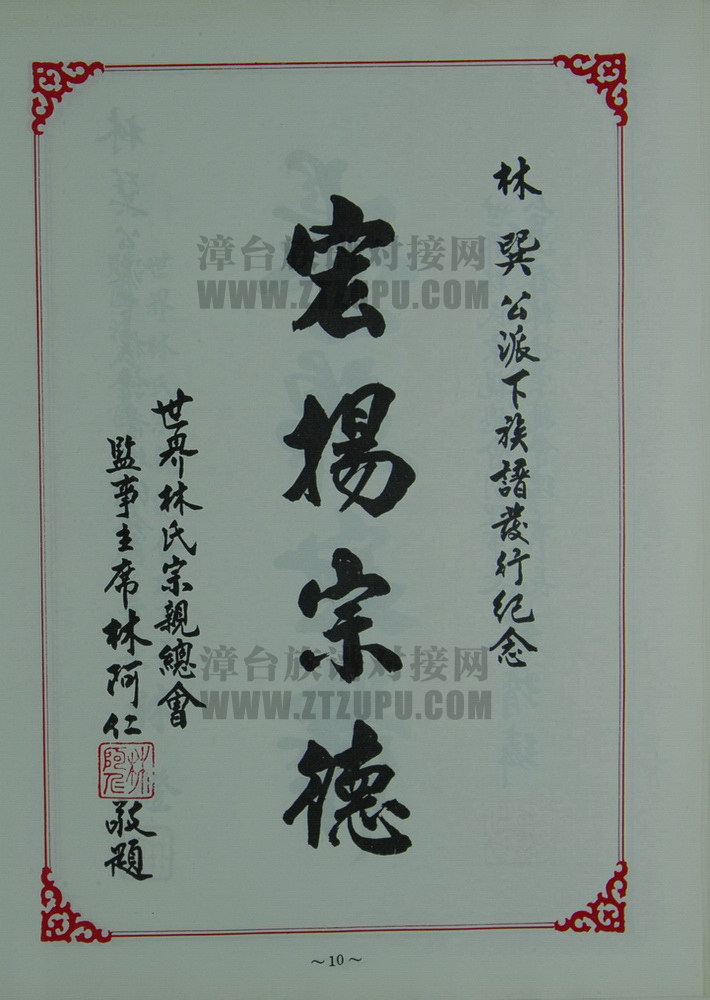 林巽公派下族譜發行纪念
宏揚宗德
世界林氏宗親總會
監事主席林阿仁
林阿仁
敬題
漳台族谱对接网
WWW.ZTZUPU.COM
漳台族谱对接网
WWW.ZTZUPU.COM
~10~